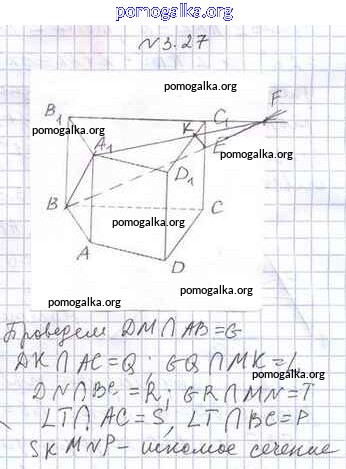 pomogalka.org
№3.27
pomogalka.org
F
B₁
C₁
pomogalka.org
K
pomogalka.org
A₁
E
D₁
B
pomogalka.org
C
A
D
pomogalka.org
pomogalka.org
Проведем DM∩AB=G
DK∩AC=Q; GQ∩MK=L
DN∩BC=R; GR∩MN=T
LT∩AC=S, LT∩BC=P
SKMNP - искомое сечение